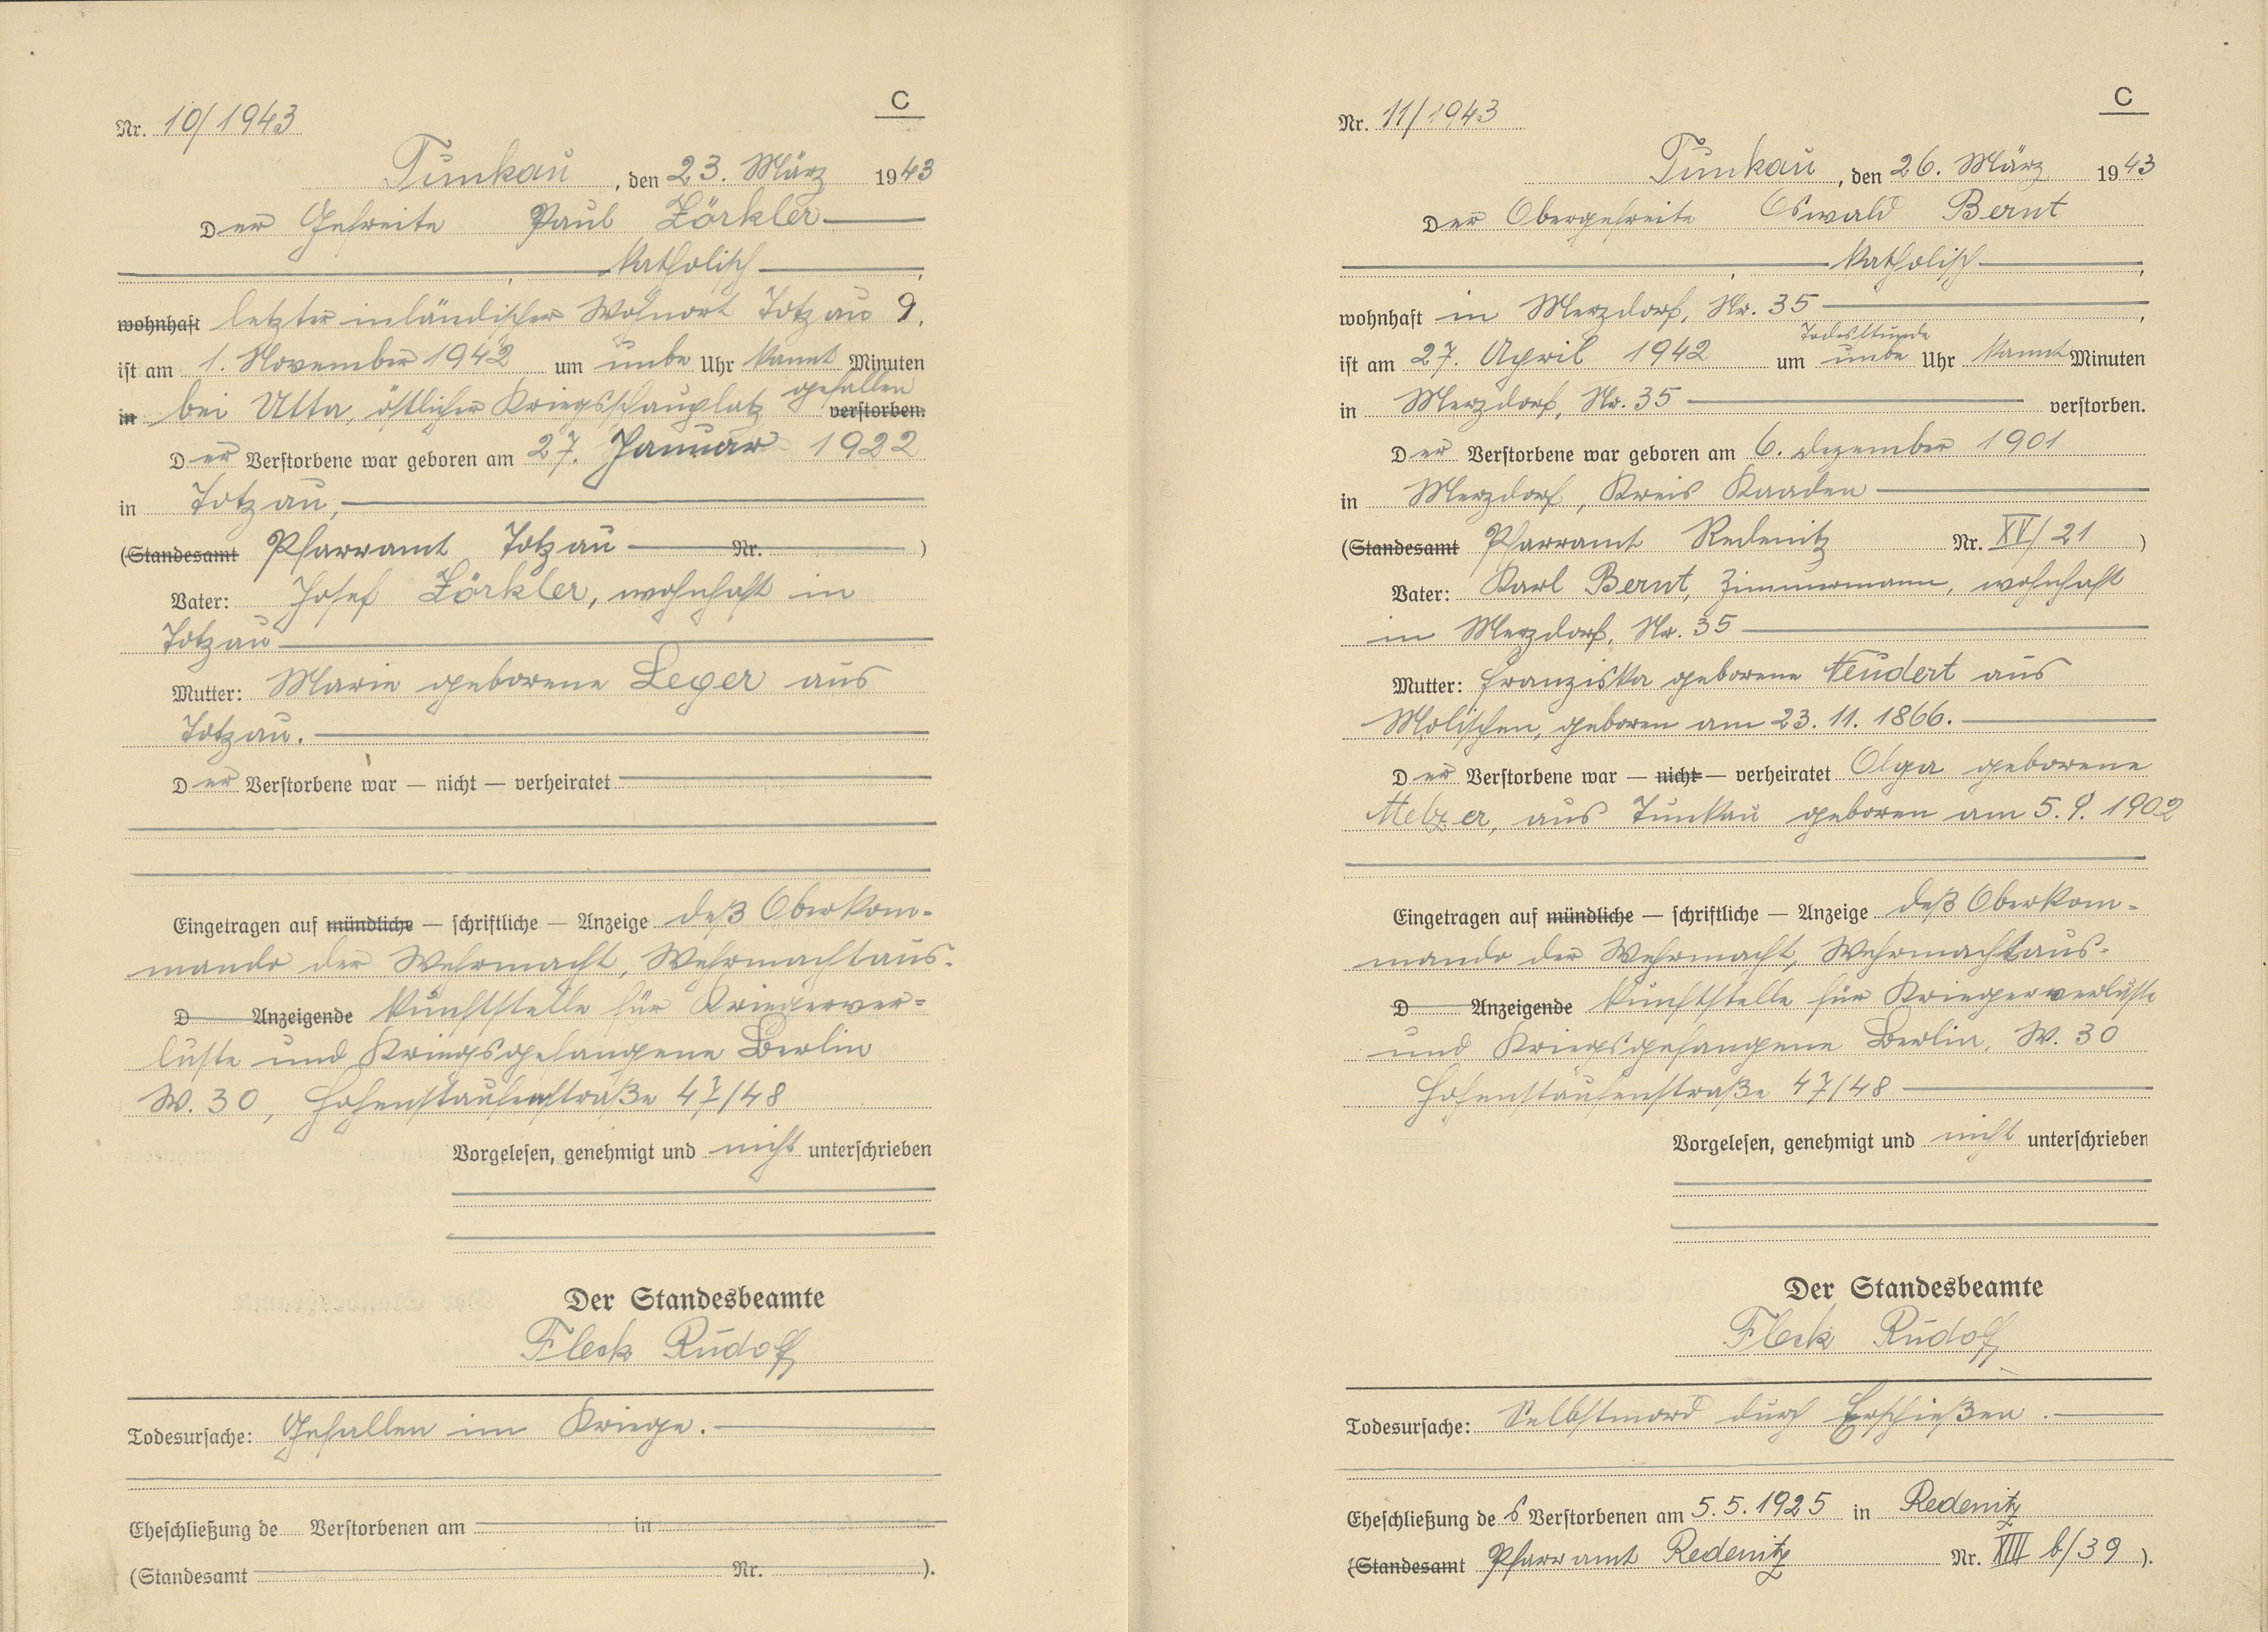 C
Nr. 10/1943
Tunkau, den 23. März 1943
Der Gefreite Paul Zörkler
katholisch,
wohnhaft letzter inländischer Wohnort Totzau 9,
ist am 1. November 1942 um unbe Uhr kannt Minuten
gefallen
in bei Utta, östlicher Kriegsschauplatz verstorben.
Der Verstorbene war geboren am 27. Januar 1922
in Totzau,
(Standesamt Pfarramt Totzau Nr. )
Vater: Josef Zörkler, wohnhaft in
Totzau
Mutter: Marie geborene Leger aus
Totzau.
Der Verstorbene war — nicht — verheiratet
Eingetragen auf mündliche — schriftliche — Anzeige deß Oberkom-
mando der Wehrmacht, Wehrmachtaus-
D Anzeigende kunftstelle für Kriegerver-
luste und Kriegsgefangene Berlin
W. 30, Hohenstaufenstraße 47/48
Vorgelesen, genehmigt und nicht unterschrieben
Der Standesbeamte
Fleck Rudolf
Todesursache: Gefallen im Kriege.
Eheschließung de Verstorbenen am in
(Standesamt Nr. ).
C
Nr. 11/1943
Tunkau, den 26. März 1943
Der Obergefreite Oswald Bernt
katholisch,
wohnhaft in Merzdorf, Nr. 35,
Todesstunde
ist am 27. April 1942 um unbe Uhr kannt Minuten
in Merzdorf, Nr. 35 verstorben.
Der Verstorbene war geboren am 6. Dezember 1901
in Merzdorf, Kreis Kaaden
(Standesamt Pfarramt Redenitz Nr. XV/21 )
Vater: Karl Bernt, Zimmermann, wohnhaft
in Merzdorf, Nr. 35
Mutter: Franziska geborene Neudert aus
Molischen, geboren am 23. 11. 1866.
Der Verstorbene war — nicht — verheiratet Olga geborene
Melzer, aus Tunkau geboren am 5. 9. 1902
Eingetragen auf mündliche — schriftliche — Anzeige deß Oberkom-
mando der Wehrmacht, Wehrmachtsaus-
D Anzeigende kunftstelle für Kriegerverluste
und Kriegsgefangene Berlin, W. 30
Hohenstaufenstraße 47/48
Vorgelesen, genehmigt und nicht unterschrieben
Der Standesbeamte
Fleck Rudolf
Todesursache: Selbstmord durch Erschießen.
Eheschließung des Verstorbenen am 5. 5. 1925 in Redenitz
(Standesamt Pfarramt Redenitz Nr. XIII b/39 ).